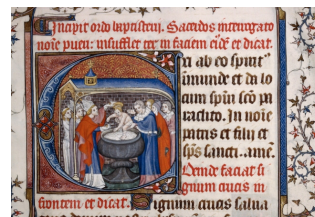 Incipit ordo baptisterii. Sacerdos interrogato
noīe pueri: insufflet ter in faciem et dicat.
Exi ab eo spirit᾽
inmunde et da lo
cum spūi scō pa
raclito. In noīe
patris et filii et
spūs sancti. amē.
Deinde faciat si
gnum crucis in
frontem et dicat. Signum crucis salua